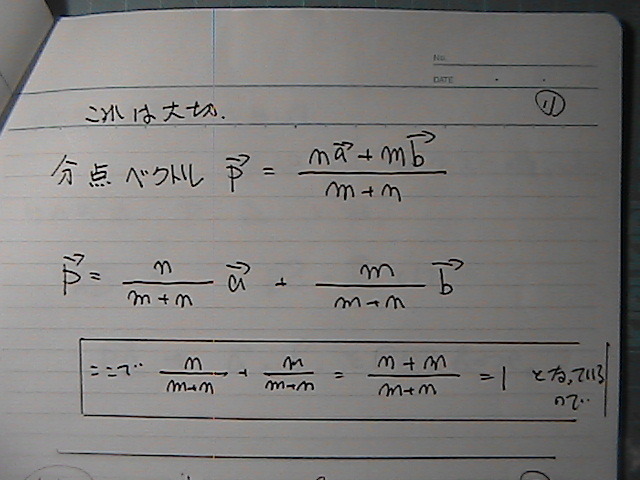 No.
DATE
⑪
これは大切.
分点ベクトル p⃗ = (na⃗+mb⃗)/(m+n)
p⃗ = n/(m+n) a⃗ + m/(m+n) b⃗
ここで n/(m+n) + m/(m+n) = (n+m)/(m+n) = 1 となっている
ので